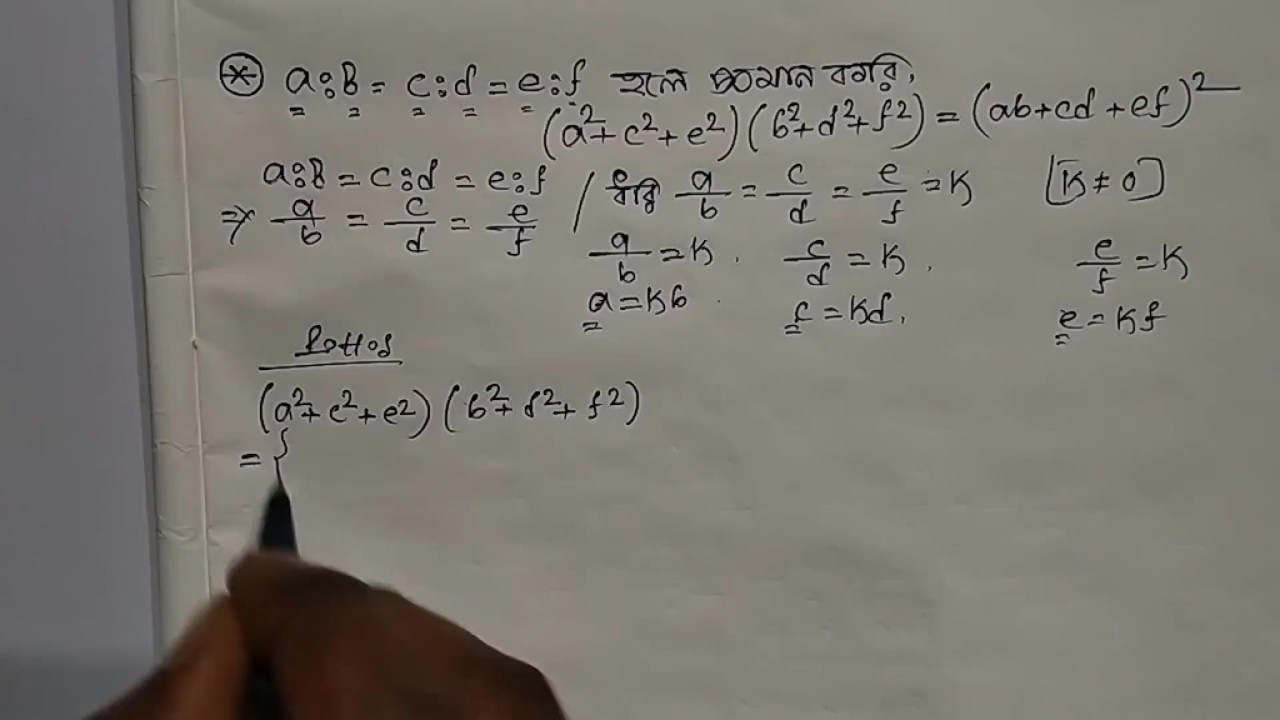 * a:B = c:d = e:f হলে প্রমাণ করি,
(a²+c²+e²)(b²+d²+f²) = (ab+cd+ef)²
a:B = c:d = e:f / ধরি a/b = c/d = e/f = K [K≠0]
⇒ a/b = c/d = e/f
a/b = K. c/d = K. e/f = K
a = Kb. c = Kd. e = Kf
(a²+c²+e²)(b²+d²+f²)
= {